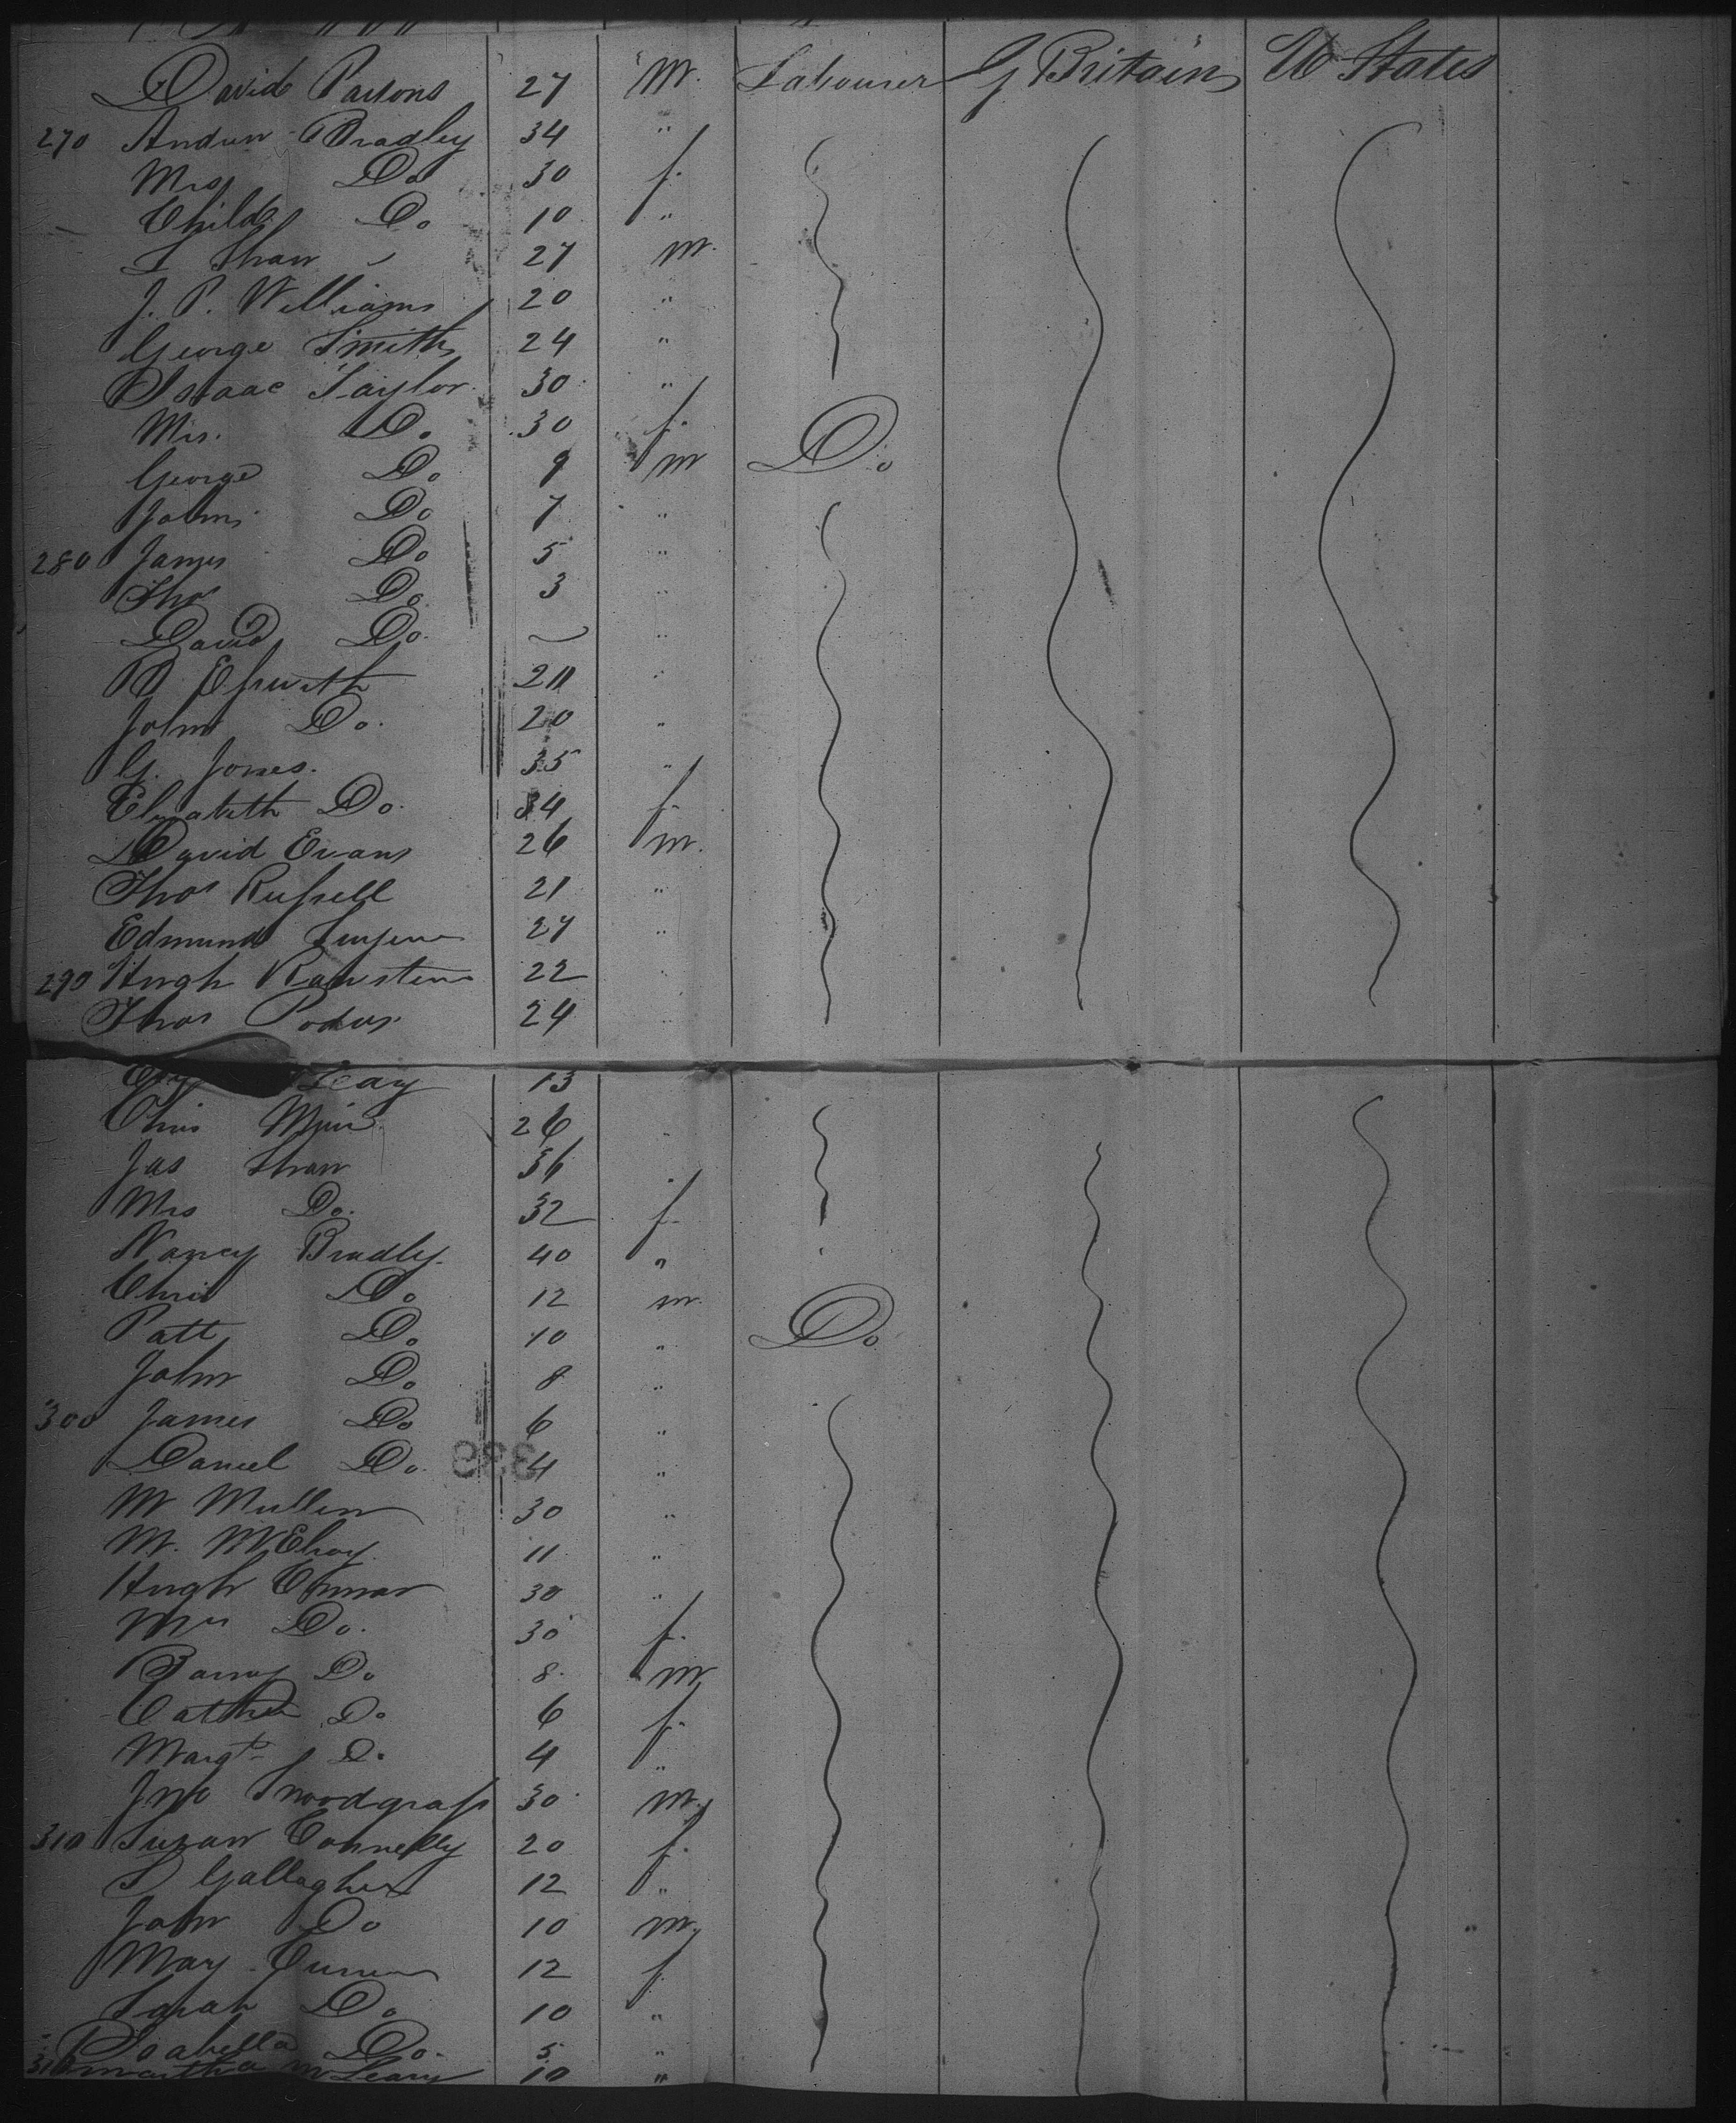 David Parsons 27 M. Labourer G Britain U States
270 Andrew Bradley 34 "
Mrs Do 30 f.
Child Do 10 "
Shaw 27 m.
J. P. Williams 20 "
George Smith 24 "
Isaac Taylor 30 "
Mrs. Do. 30 f.
George Do 9 m Do
John Do 7 "
280 James Do 5 "
Thos Do 3 "
David Do. "
20 "
John Do. 20 "
G. Jones. 35 "
Elizabeth Do. 34 f
David Evans 26 m.
Thos Russell 21 "
Edmund 27 "
290 Hugh 22 "
Thos 24 "
13
Chris Muir 26 "
Jas Shaw 36 "
Mrs Do. 32 f
Nancy Bradley 40 "
Chris Do 12 m.
Patt Do 10 " Do
John Do 8 "
300 James Do 6 "
Daniel Do. 4 "
M Mullen 30 "
M. McElroy 11 "
Hugh 30 "
Mrs Do. 30 f.
Barny Do 8 m
Do 6 f.
Margt Do 4 "
Jno Snodgrass 30 m.
310 Suzan Connelly 20 f.
S Gallagher 12 "
John Do 10 m.
Mary 12 f
Sarah Do 10 "
Isabella Do. 5 "
Martha McLeary 10 "